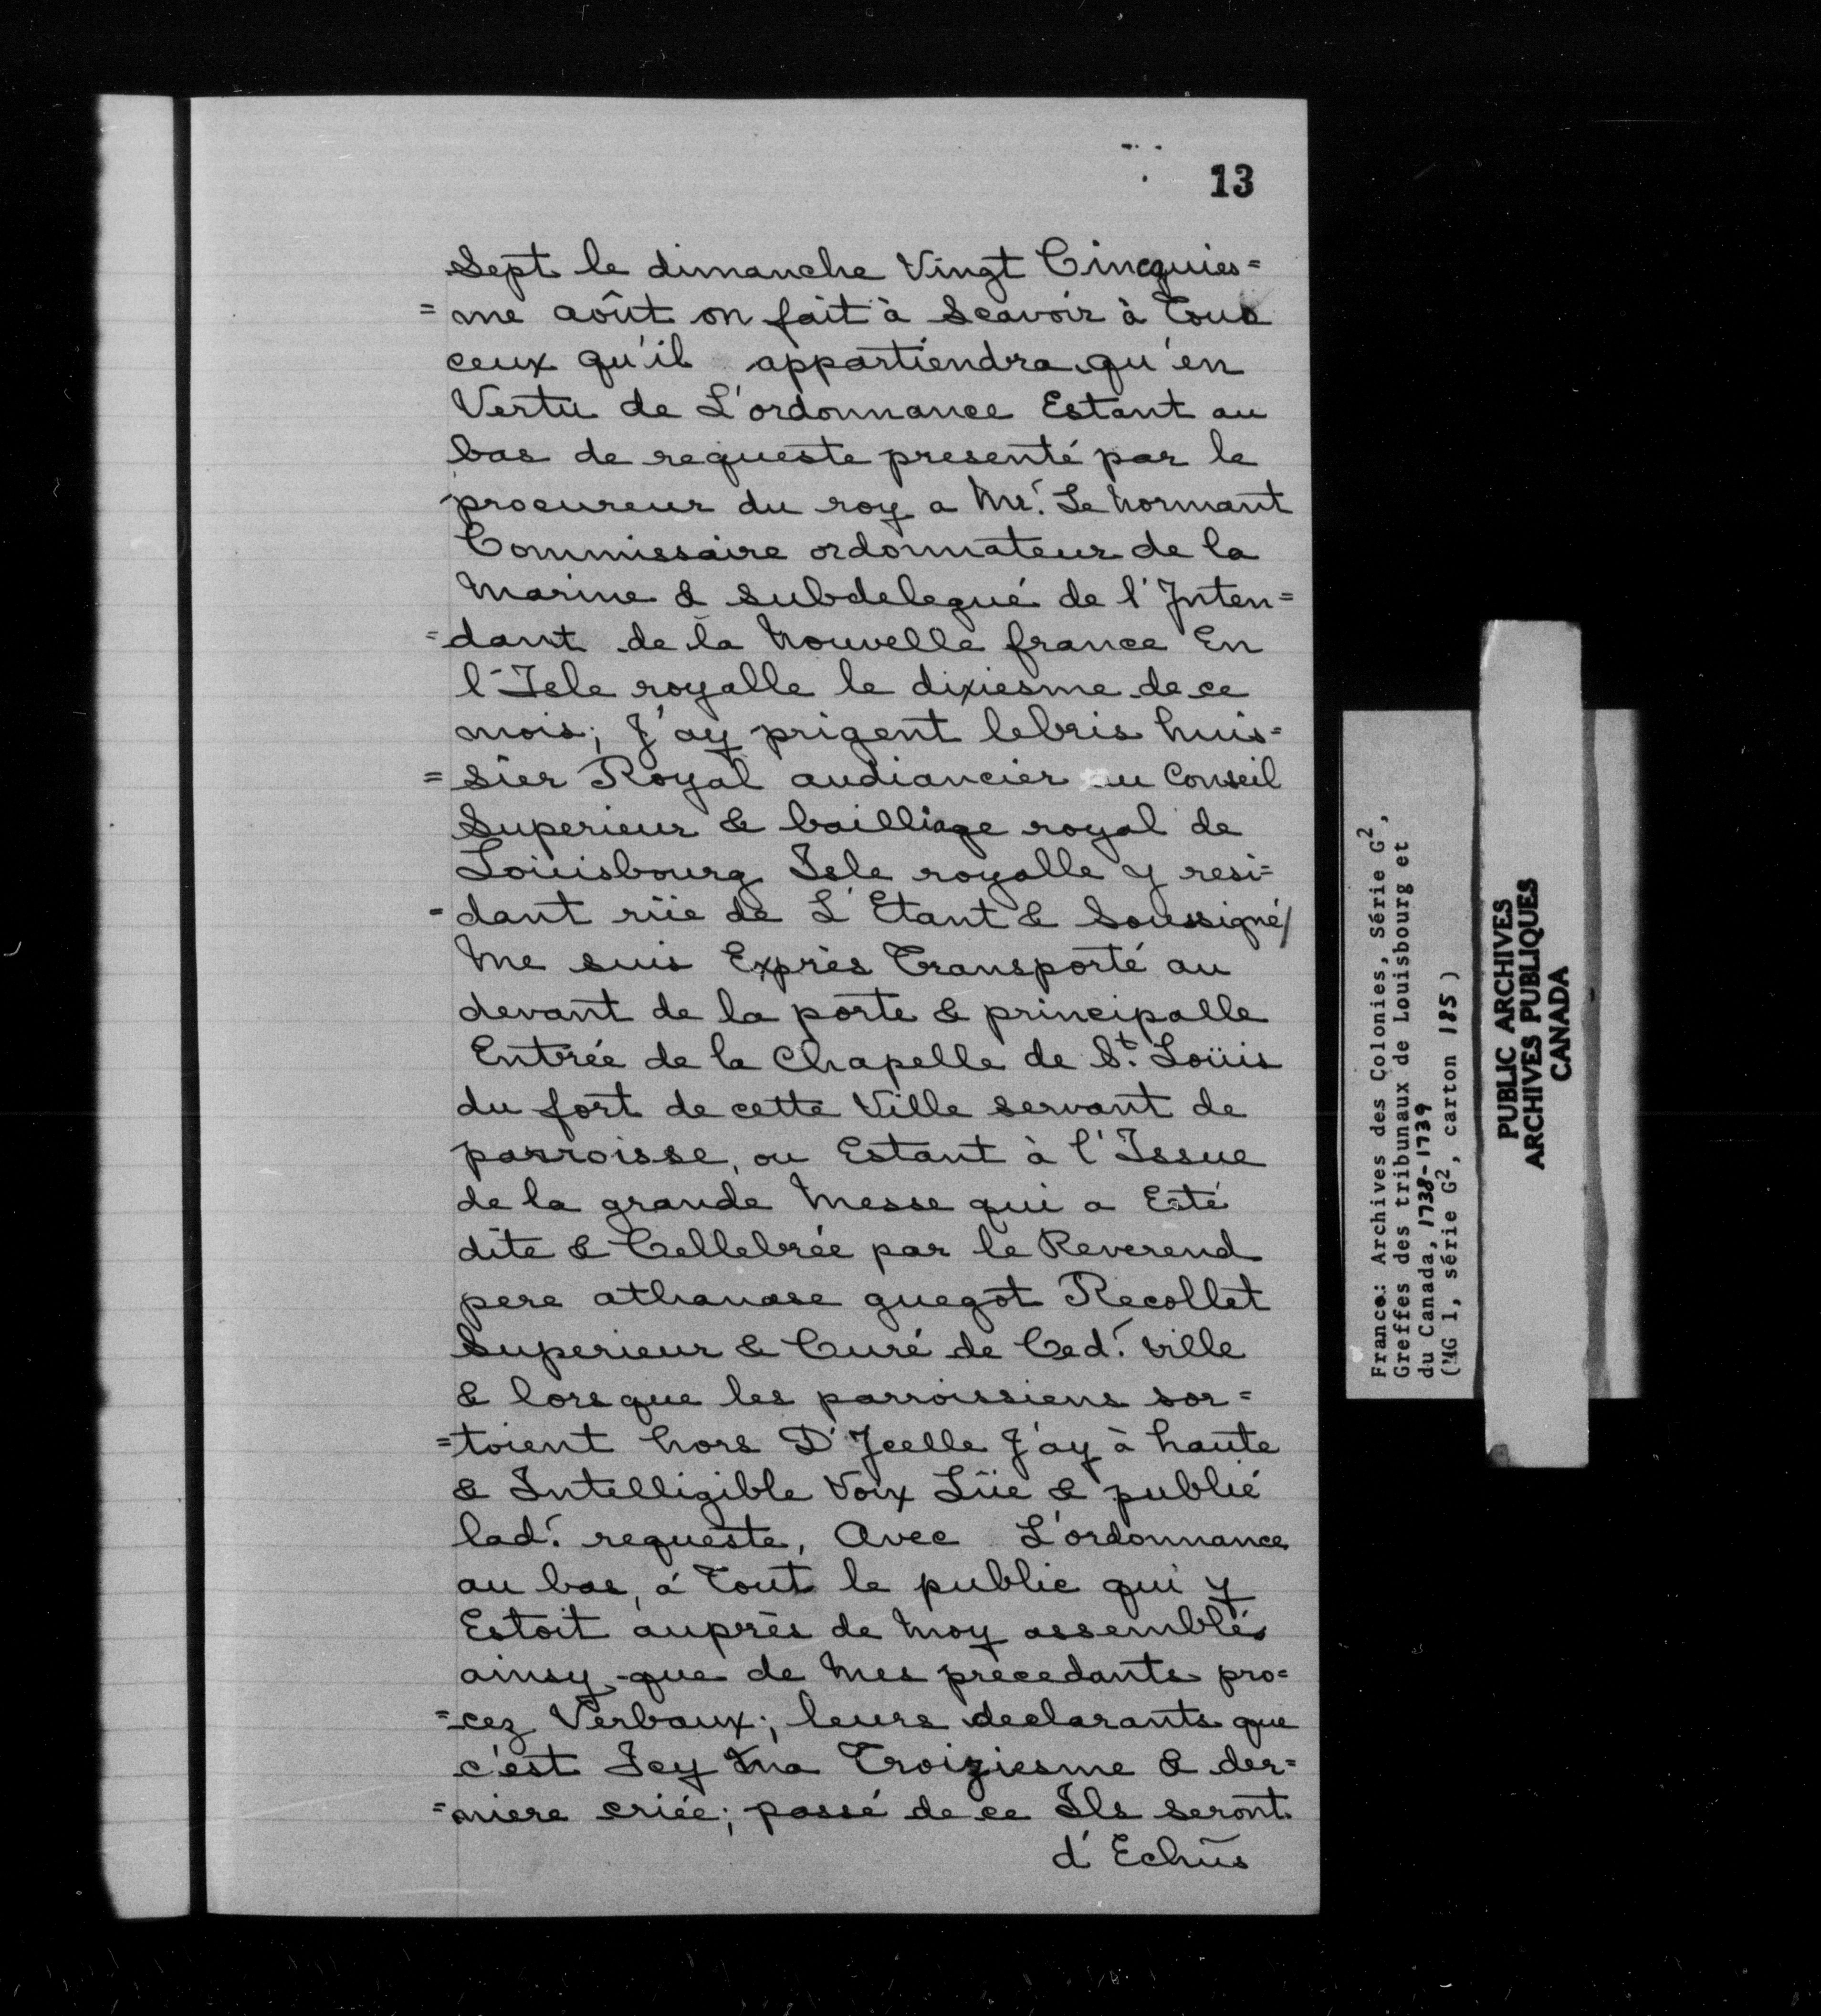 13
Sept le dimanche Vingt Cincquies=
=me août on fait à Scavoir à Tous
ceux qu'il appartiendra qu'en
Vertu de L'ordonnance Estant au
bas de requeste presenté par le
procureur du roy a Mr. Le Normant
Commissaire ordonnateur de la
Marine & subdelegué de l'Inten=
=dant de la Nouvelle france En
l'Isle royalle le dixiesme de ce
mois; J'ay prigent lebris huis=
=sier Royal audiancier au Conseil
Superieur & bailliage royal de
Loüisbourg Isle royalle y resi=
-dant rüe de L'Etant & Soussigné/
Me suis Exprès Transporté au
devant de la porte & principalle
Entrée de la Chapelle de St. Loüis
du fort de cette Ville servant de
parroisse, ou Estant à l'Issue
de la grande Messe qui a Esté
dite & Cellebrée par le Reverend
pere athanase guegot Recollet
Superieur & Curé de Ced. ville
& lorsque les parroissiens sor=
=toient hors D'Jcelle J'ay à haute
& Intelligible Voix Lüe & publié
lad. requeste, Avec L'ordonnance
au bas, à Tout le public qui y
Estoit auprès de Moy assemblés
ainsy que de Mes precedants pro=
=cez Verbaux; leurs declarants que
c'est Icy Ma Troiziesme & der=
=niere criée; passé de ce Ils seront
d'Echüs
France: Archives des Colonies, Série G2,
Greffes des tribunaux de Louisbourg et
du Canada, 1738-1739
(MG 1, série G2, carton 185)
PUBLIC ARCHIVES
ARCHIVES PUBLIQUES
CANADA